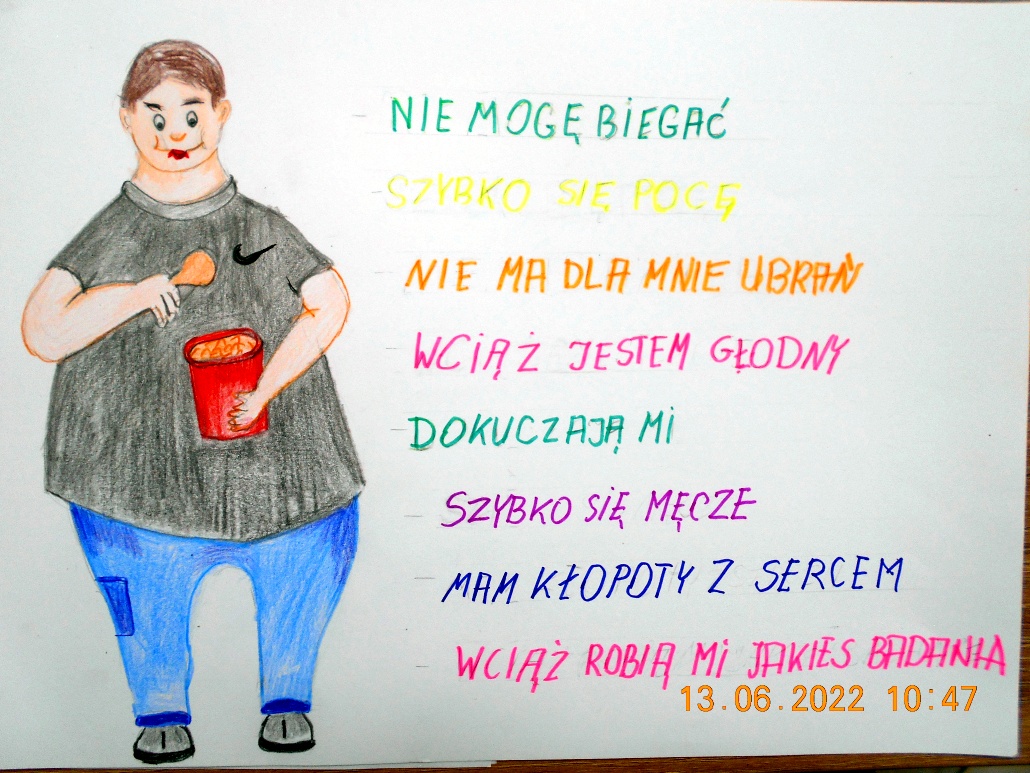 NIE MOGĘ BIEGAĆ
SZYBKO SIĘ POCĘ
NIE MA DLA MNIE UBRAŃ
WCIĄŻ JESTEM GŁODNY
DOKUCZAJĄ MI
SZYBKO SIĘ MĘCZE
MAM KŁOPOTY Z SERCEM
WCIĄŻ ROBIĄ MI JAKIES BADANIA
13.06.2022 10:47